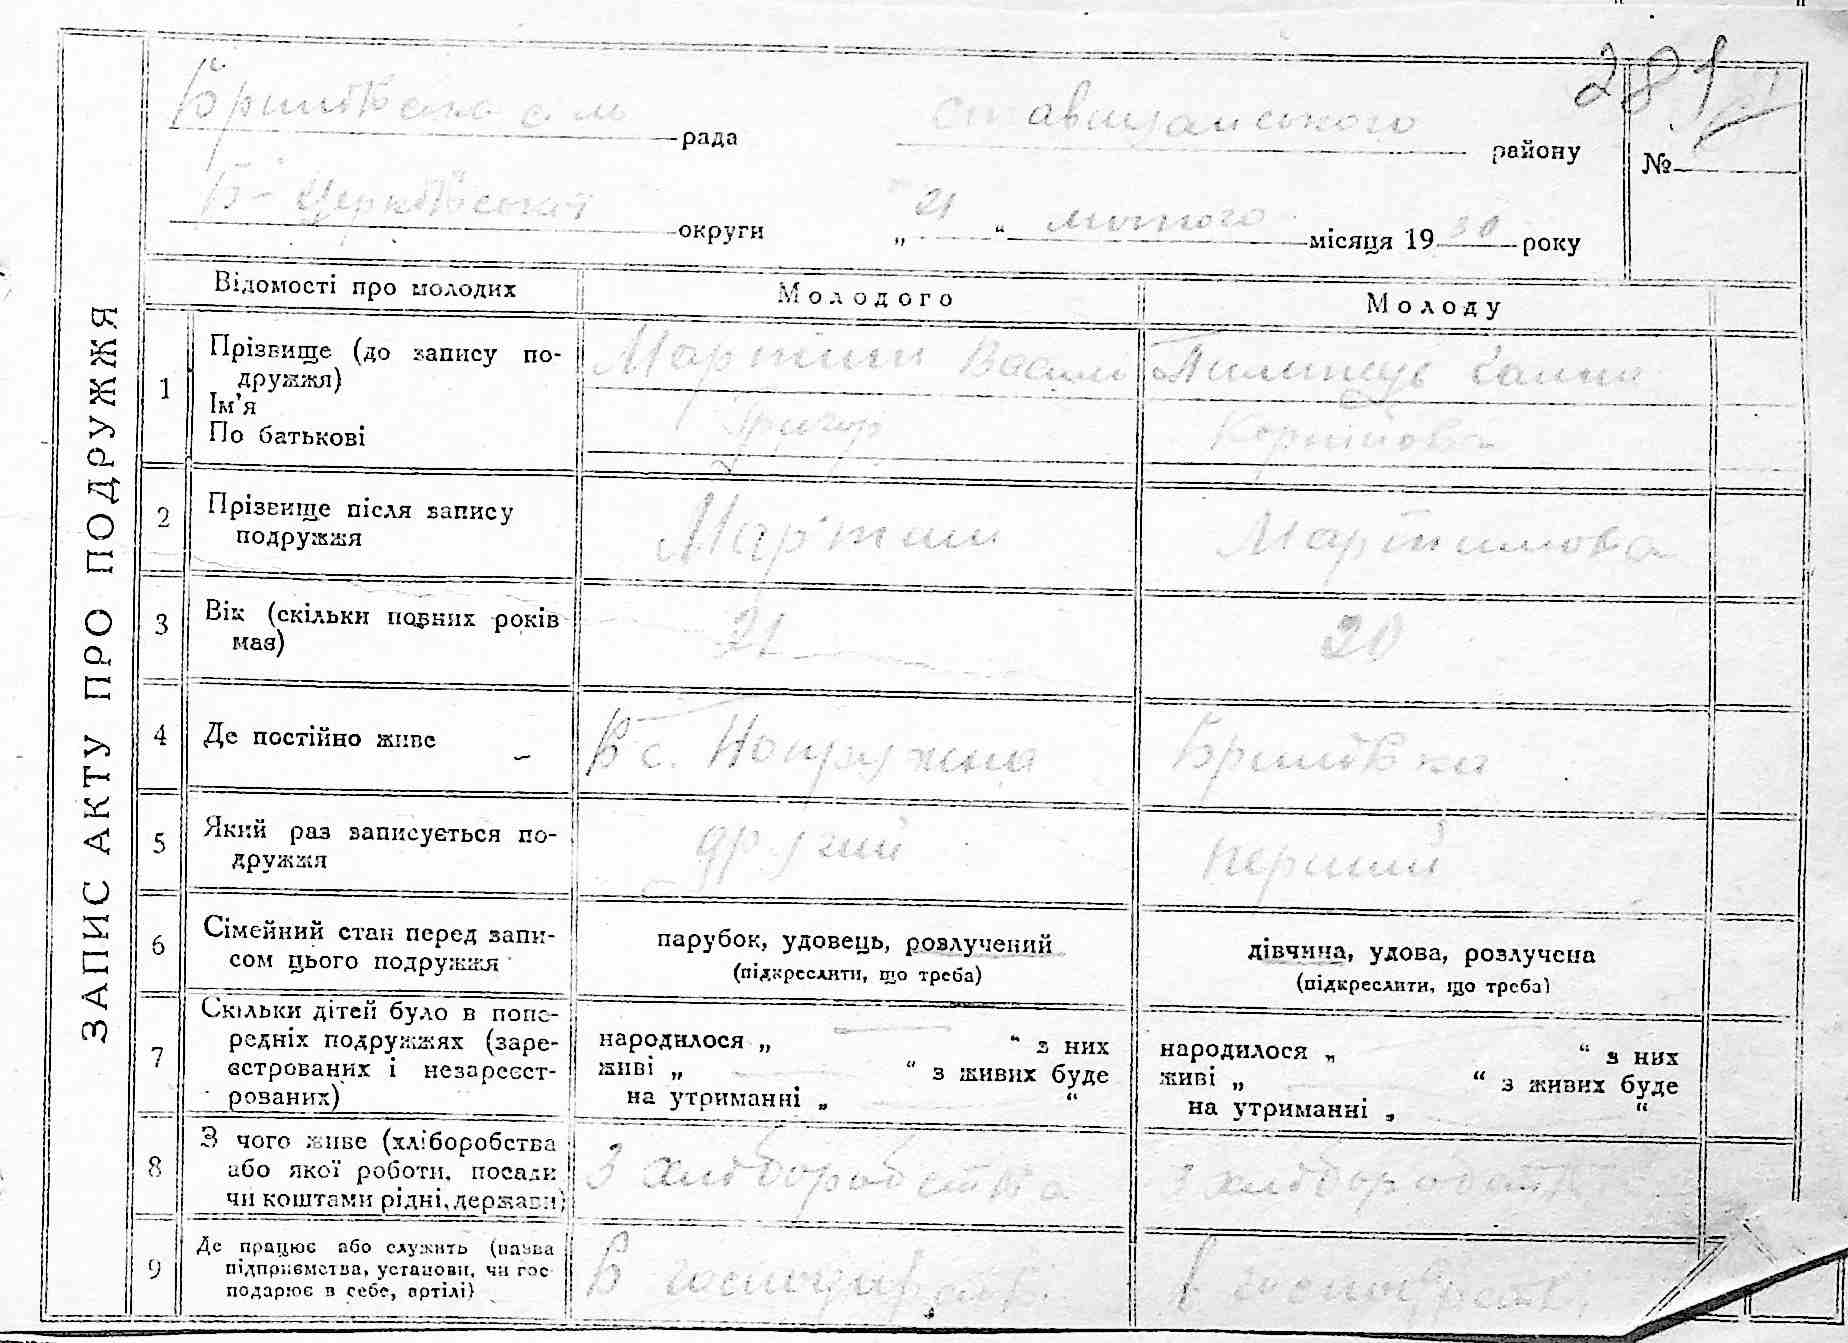 281
Бришківська сіль рада Ставищанського району №
Б-Церківської округи „21“ лютого місяця 1930 року
ЗАПИС АКТУ ПРО ПОДРУЖЖЯ
Відомості про молодих Молодого Молоду
1 Прізвище (до запису по-
дружжя)
Ім'я
По батькові
Мартин Василь
Григор
Ганна
Корнійовна
2 Прізвище після запису
подружжя
Мартин Мартинова
3 Вік (скільки повних років
має)
21 20
4 Де постійно живе В с. Попружна Бришківка
5 Який раз записується по-
дружжя
другий перший
6 Сімейний стан перед запи-
сом цього подружжя
парубок, удовець, розлучений
(підкреслити, що треба)
дівчина, удова, розлучена
(підкреслити, що треба)
7 Скільки дітей було в попе-
редніх подружжях (заре-
єстрованих і незареєст-
рованих)
народилося „ “ з них
живі „ “ з живих буде
на утриманні „ “
народилося „ “ з них
живі „ “ з живих буде
на утриманні „ “
8 З чого живе (хліборобства
або якої роботи, посади
чи коштами рідні, держави)
З хліборобства З хліборобства
9 Де працює або служить (назва
підприємства, установи, чи гос-
подарює в себе, артілі)
В господарстві В господарстві